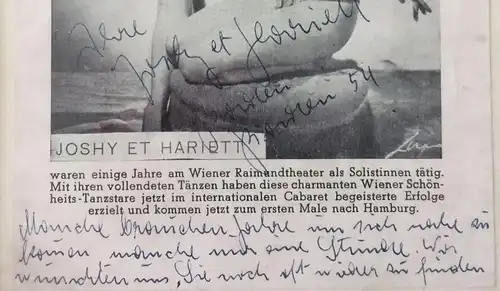 Ihre
Joshy et Hariett
54
JOSHY ET HARIETT
waren einige Jahre am Wiener Raimundtheater als Solistinnen tätig.
Mit ihren vollendeten Tänzen haben diese charmanten Wiener Schön-
heits-Tanzstare jetzt im internationalen Cabaret begeisterte Erfolge
erzielt und kommen jetzt zum ersten Male nach Hamburg.
Manche brauchen Jahre um sich nahe zu
kommen, manche nur eine Stunde. Wir
wünschten uns, Sie noch oft wieder zu finden